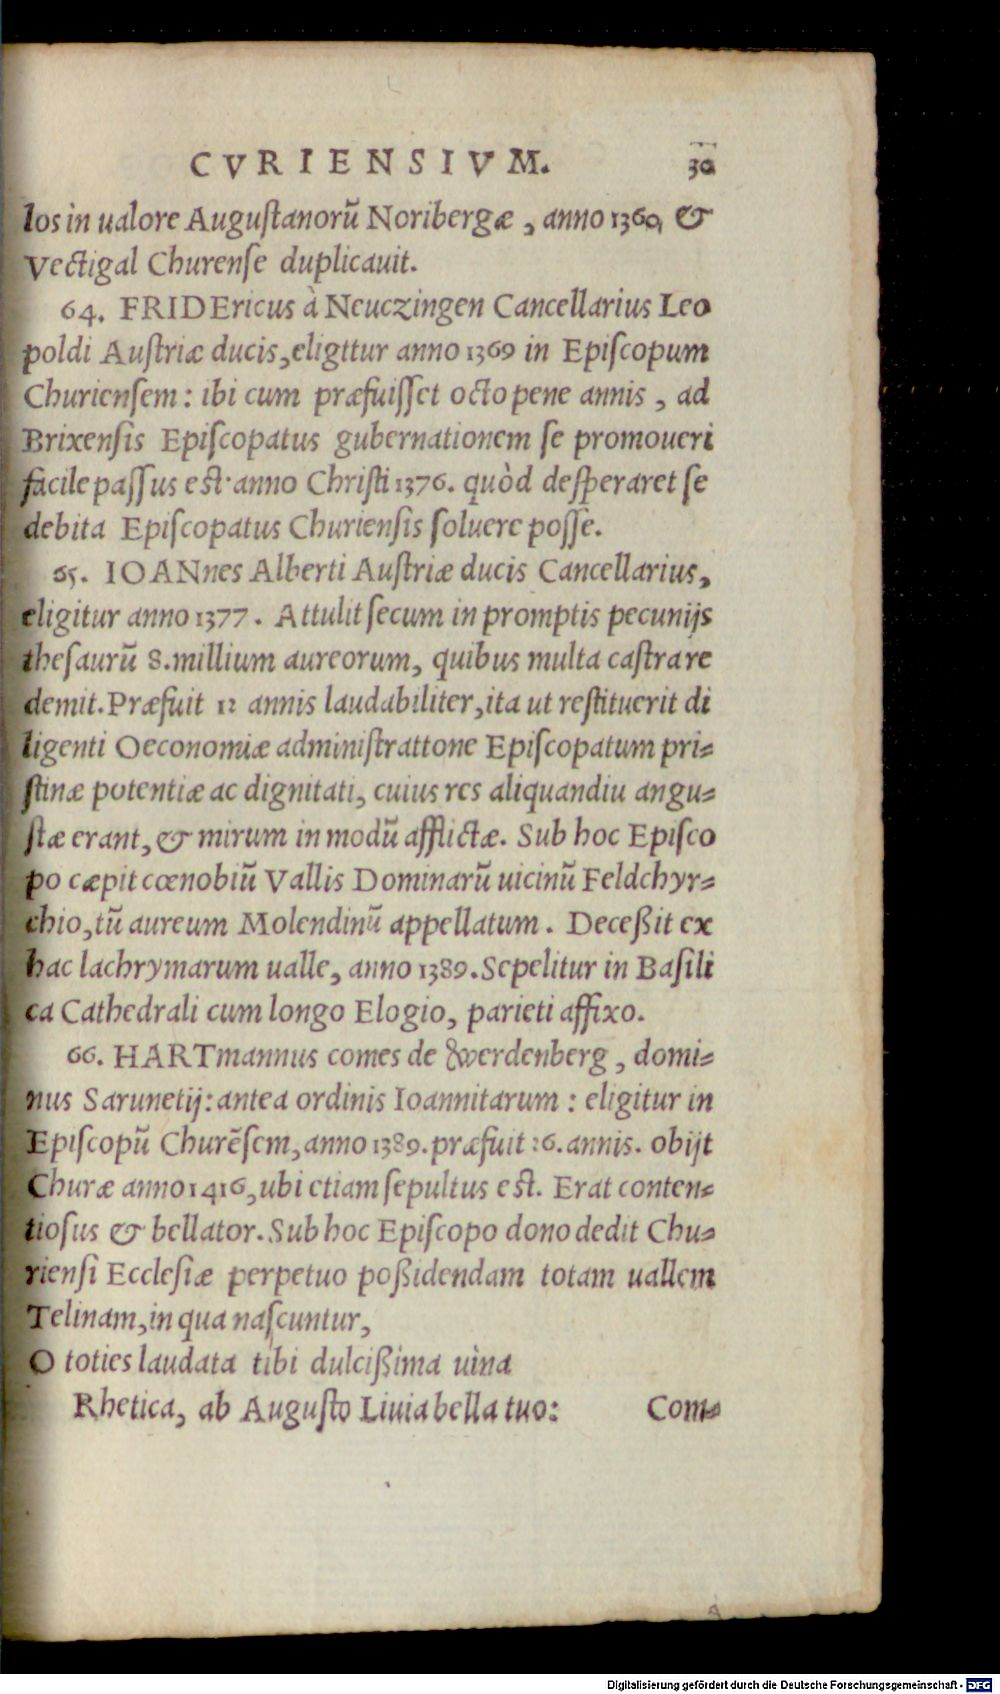 CVRIENSIVM. 30
los in ualore Augustanorũ Noribergæ, anno 1360, &
Vectigal Churense duplicauit.
64. FRIDEricus à Neuczingen Cancellarius Leo
poldi Austriæ ducis, eligttur anno 1369 in Episcopum
Churiensem: ibi cum præfuisset octo pene annis, ad
Brixensis Episcopatus gubernationem se promoueri
facile passus est·anno Christi 1376. quòd desperaret se
debita Episcopatus Churiensis soluere posse.
65. IOANnes Alberti Austriæ ducis Cancellarius,
eligitur anno 1377. Attulit secum in promptis pecunijs
thesaurũ 8. millium aureorum, quibus multa castra re
demit. Præfuit 12 annis laudabiliter, ita ut restituerit di
ligenti Oeconomiæ administrattone Episcopatum pri-
stinæ potentiæ ac dignitati, cuius res aliquandiu angu-
stæ erant, & mirum in modũ afflictæ. Sub hoc Episco
po cæpit cœnobiũ Vallis Dominarũ uicinũ Feldchyr-
chio, tũ aureum Molendinũ appellatum. Deceßit ex
hac lachrymarum ualle, anno 1389. Sepelitur in Basili
ca Cathedrali cum longo Elogio, parieti affixo.
66. HARTmannus comes de Werdenberg, domi-
nus Sarunetij: antea ordinis Ioannitarum: eligitur in
Episcopũ Churẽsem, anno 1389. præfuit 26. annis. obijt
Churæ anno 1416, ubi etiam sepultus est. Erat conten-
tiosus & bellator. Sub hoc Episcopo dono dedit Chu-
riensi Ecclesiæ perpetuo poßidendam totam uallem
Telinam, in qua nascuntur,
O toties laudata tibi dulcißima uina
Rhetica, ab Augusto Liuia bella tuo: Com-
Digitalisierung gefördert durch die Deutsche Forschungsgemeinschaft - DFG